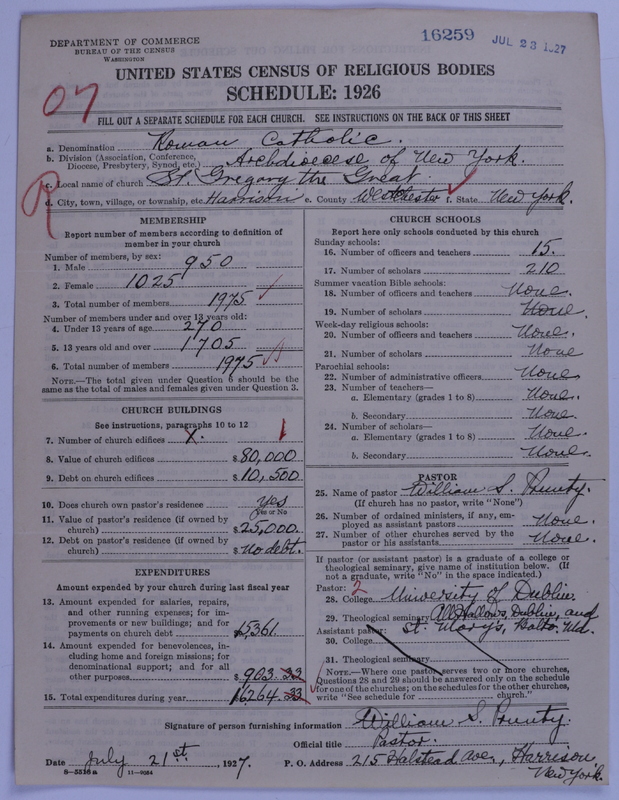 16259 JUL 23 1927
DEPARTMENT OF COMMERCE
BUREAU OF THE CENSUS
WASHINGTON
UNITED STATES CENSUS OF RELIGIOUS BODIES
SCHEDULE: 1926
07
FILL OUT A SEPARATE SCHEDULE FOR EACH CHURCH. SEE INSTRUCTIONS ON THE BACK OF THIS SHEET
a. Denomination Roman Catholic.
b. Division (Association, Conference, Diocese, Presbytery, Synod, etc.) Archdiocese of New York.
c. Local name of church St. Gregory the Great
d. City, town, village, or township, etc Harrison e. County Westchester f. State New York.
MEMBERSHIP
Report number of members according to definition of
member in your church
Number of members, by sex:
1. Male 950
2. Female 1025
3. Total number of members 1975
Number of members under and over 13 years old:
4. Under 13 years of age 270
5. 13 years old and over 1705
6. Total number of members 1975
NOTE.—The total given under Question 6 should be the
same as the total of males and females given under Question 3.
CHURCH BUILDINGS
See instructions, paragraphs 10 to 12
7. Number of church edifices X. 1
8. Value of church edifices $80,000
9. Debt on church edifices $10,500
10. Does church own pastor's residence yes
Yes or No
11. Value of pastor's residence (if owned by
church) $25,000.
12. Debt on pastor's residence (if owned by
church) $No debt.
EXPENDITURES
Amount expended by church during last fiscal year
13. Amount expended for salaries, repairs,
and other running expenses; for im-
provements or new buildings; and for
payments on church debt 15361.
14. Amount expended for benevolences, in-
cluding home and foreign missions; for
denominational support; and for all
other purposes $903.33
15. Total expenditures during year 16264.33
CHURCH SCHOOLS
Report here only schools conducted by this church
Sunday schools:
16. Number of officers and teachers 15.
17. Number of scholars 210
Summer vacation Bible schools:
18. Number of officers and teachers None.
19. Number of scholars None.
Week-day religious schools:
20. Number of officers and teachers None.
21. Number of scholars None
Parochial schools:
22. Number of administrative officers None.
23. Number of teachers—
a. Elementary (grades 1 to 8) None.
b. Secondary None.
24. Number of scholars—
a. Elementary (grades 1 to 8) None.
b. Secondary None.
PASTOR
25. Name of pastor William S. Prunty.
(If church has no pastor, write "None")
26. Number of ordained ministers, if any, em-
ployed as assistant pastors None.
27. Number of other churches served by the
pastor or his assistants None.
If pastor (or assistant pastor) is a graduate of a college or
theological seminary, give name of institution below. (If
not a graduate, write "No" in the space indicated.)
Pastor: 2
28. College University of Dublin
29. Theological seminary All Hallows, Dublin, and
Assistant pastor: St. Mary's, Balto. Md.
30. College
31. Theological seminary
NOTE.—Where one pastor serves two or more churches,
Questions 28 and 29 should be answered only on the schedule
for one of the churches; on the schedules for the other churches,
write "See schedule for church."
Signature of person furnishing information William S. Prunty.
Official title Pastor.
Date July 21st, 1927. P. O. Address 215 Halstead Ave., Harrison
New York.
8-5516 a 11-9064